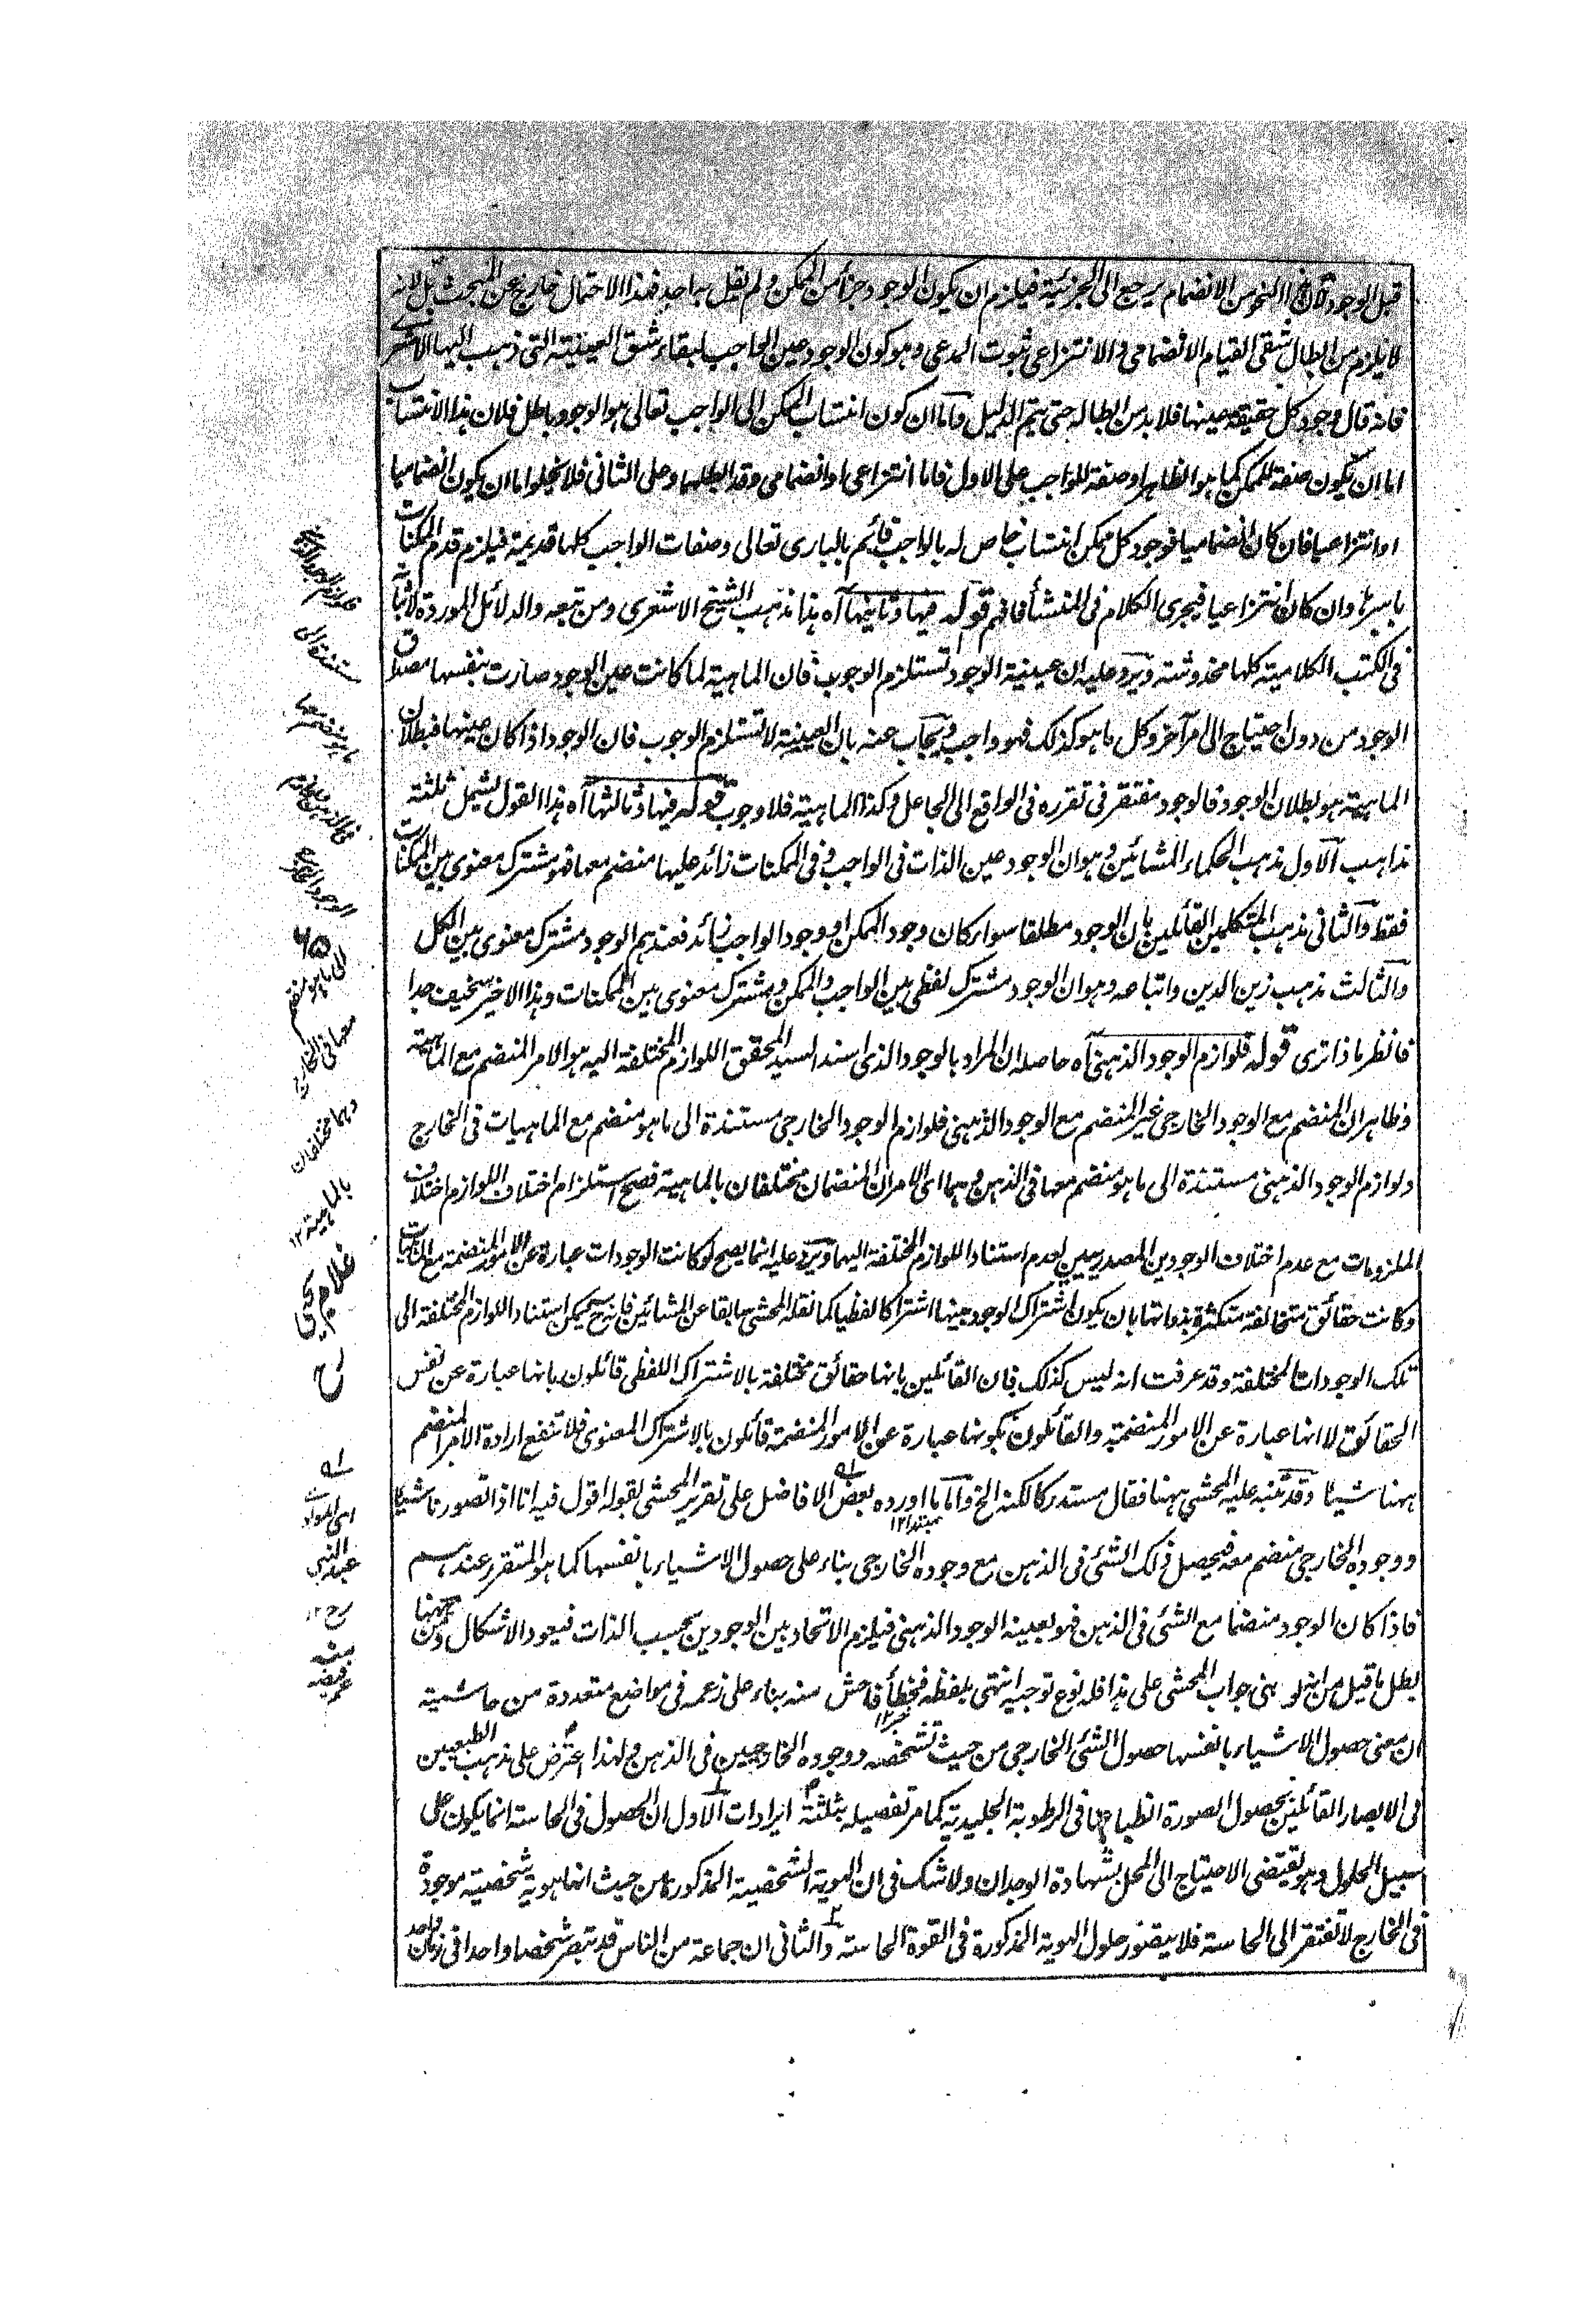 قبل الوجود لان هذا النحو من الانضمام يرجع الى الجزئية فيلزم ان يكون الوجود جزأ من الممكن ولم يقل به احد فهذا الاحتمال خارج عن المبحث بل لانه
لا يلزم من ابطال شقى القيام الانضمامى والانتزاعى ثبوت المدعى وهو كون الوجود عين الواجب لبقاء شق العينية التى ذهب اليها الاشعرى
فانه قال وجود كل حقيقة عينها فلا بد من ابطاله حتى يتم الدليل واما ان كون انتساب الممكن الى الواجب تعالى هو الوجود باطل فلان هذا الانتساب
اما ان يكون صفة للممكن كما هو الظاهر او صفة للواجب على الاول فاما انتزاعى او انضمامى وقد ابطلهما وعلى الثانى فلا يخلوا ما ان يكون انضماميا
او انتزاعيا فان كان انضماميا فوجود كل ممكن انتساب خاص له بالواجب قائم بالبارى تعالى وصفات الواجب كلها قديمة فيلزم قدم الممكنات
باسرها وان كان انتزاعيا فيجرى الكلام فى المنشأ فافهم قوله فيها وثانيها آه هذا مذهب الشيخ الاشعرى ومن تبعه والدلائل الموردة لاثباته
فى الكتب الكلامية كلها مخدوشة ويرد عليه ان عينية الوجود تستلزم الوجوب فان الماهية لما كانت عين الوجود صارت بنفسها مصداق
الوجود من دون احتياج الى امر آخر وكل ما هو كذلك فهو واجب ويجاب عنه بان العينية لا تستلزم الوجوب فان الوجود اذا كان عينها فبطلان
الماهية هو بطلان الوجود فالوجود مفتقر فى تقرره فى الواقع الى الجاعل وكذا الماهية فلا وجوب قوله فيها وثالثها آه هذا القول يشمل ثلثة
مذاهب الاول مذهب الحكماء المشائين وهو ان الوجود عين الذات فى الواجب وفى الممكنات زائد عليها منضم معها فهو مشترك معنوى بين الممكنات
فقط والثانى مذهب المتكلمين القائلين بان الوجود مطلقا سواء كان وجود الممكن او وجود الواجب زائد فعندهم الوجود مشترك معنوى بين الكل
والثالث مذهب زين الدين واتباعه وهو ان الوجود مشترك لفظى بين الواجب والممكن ومشترك معنوى بين الممكنات وهذا الاخير سخيف جدا
فانظر ما ذا ترى قوله فلوازم الوجود الذهنى آه حاصله ان المراد بالوجود الذى اسند السيد المحقق اللوازم المختلفة اليه هو الامر المنضم مع الماهية
وظاهر ان المنضم مع الوجود الخارجى غير المنضم مع الوجود الذهنى فلوازم الوجود الخارجى مستندة الى ما هو منضم مع الماهيات فى الخارج
ولوازم الوجود الذهنى مستندة الى ما هو منضم معها فى الذهن وهما اى الامران المنضمان مختلفان بالماهية فصح استلزام اختلاف اللوازم اختلاف
الملزومات مع عدم اختلاف الوجودين المصدريين لعدم استناد اللوازم المختلفة اليهما ويرد عليه انما يصح لو كانت الوجودات عبارة عن الامور المنضمة مع الماهيات
وكانت حقائق متخالفة متكثرة بذواتها بان يكون اشتراك الوجود بينها اشتراكا لفظيا كما نقله المحشى سابقا عن المشائين فانه ح يمكن استناد اللوازم المختلفة الى
تلك الوجودات المختلفة وقد عرفت انه ليس كذلك فان القائلين بانها حقائق مختلفة بالاشتراك اللفظى قائلون بانها عبارة عن نفس
الحقائق لا انها عبارة عن الامور المنضمة والقائلون بكونها عبارة عن الامور المنضمة قائلون بالاشتراك المعنوى فلا تنفع ارادة الامر المنضم
ههنا شيئا وقد تنبه عليه المحشى ههنا فقال مستدركا لكنه الخ واما ما اورده بعض الافاضل على تقرير المحشى بقوله اقول فيه انا اذا تصورنا شيئا
ووجوده الخارجى منضم معه فيحصل ذلك الشئ فى الذهن مع وجوده الخارجى بناء على حصول الاشياء بانفسها كما هو المتقرر عندهم
فاذا كان الوجود منضما مع الشئ فى الذهن فهو بعينه الوجود الذهنى فيلزم الاتحاد بين الوجودين بحسب الذات فيعود الاشكال ومن ههنا
بطل ما قيل من انه لو بنى جواب المحشى على هذا فله نوع توجيه انتهى بلفظه فخطأ فاحش منه بناء على زعمه فى مواضع متعددة من حاشية
ان معنى حصول الاشياء بانفسها حصول الشئ الخارجى من حيث تشخصه ووجوده الخارجيين فى الذهن ولهذا اعترض على مذهب الطبعيين
فى الابصار القائلين بحصول الصورة انطباعها فى الرطوبة الجليدية كما مر تفصيله بثلثة ايرادات الاول ان الحصول فى الحاسة انما يكون على
سبيل الحلول وهو يقتضى الاحتياج الى المحل بشهادة الوجدان ولا شك فى ان الهوية الشخصية المذكورة من حيث انها هوية شخصية موجودة
فى الخارج لا تفتقر الى الحاسة فلا يتصور حلول الهوية المذكورة فى القوة الحاسة والثانى ان جماعة من الناس قد تبصر شخصا واحدا فى زمان واحد
مستندة الى
ما هو منضم معها
الى ما هو منضم
معها فى الخارج
وهما مختلفان
بالماهية ١٢
غلام يحيى
رح
اى المولوى
عبد النبى
رح ١٢
منه
عم فيضه